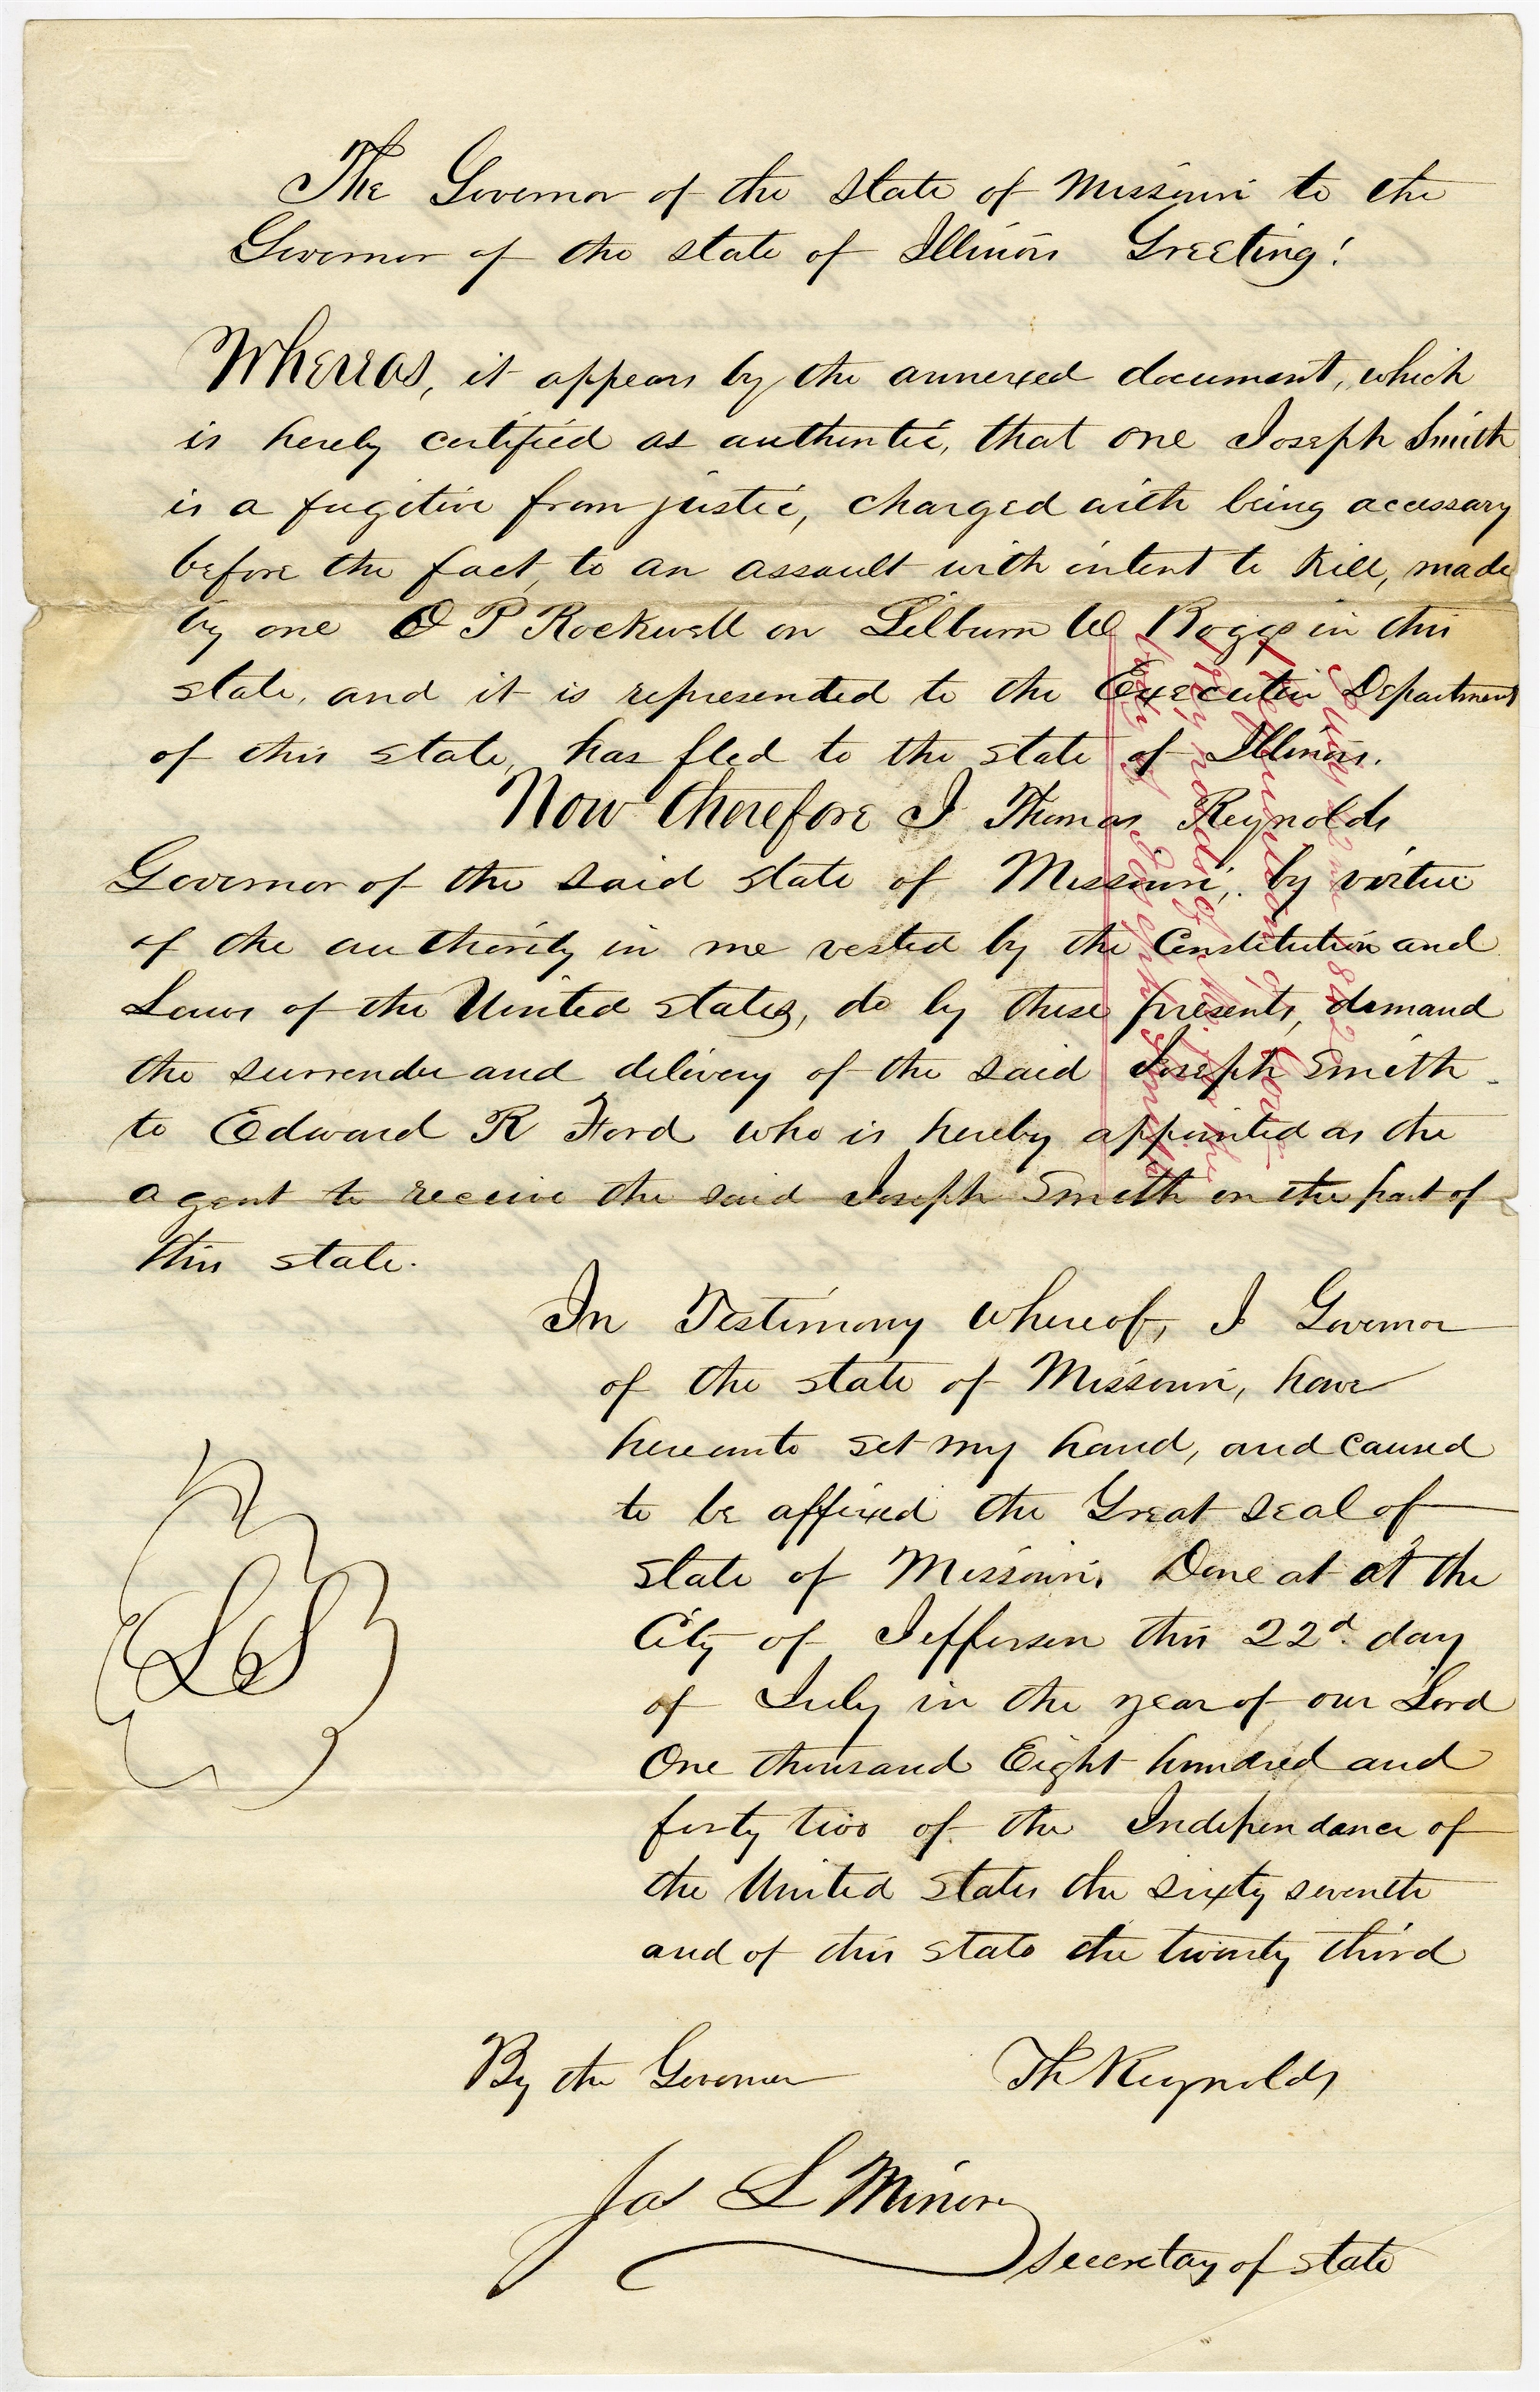 The Governor of the State of Missouri to the
Governor of the state of Illinois Greeting!
Whereas, it appears by the annexed document, which
is hereby certified as authentic, that one Joseph Smith
is a fugitive from justice, charged with being accessary
before the fact, to an assault with intent to Kill, made
by one O P Rockwell on Lilburn W Boggs in this
state, and it is represented to the Executive Department
of this state, has fled to the state of Illinois.
Now therefore I Thomas Reynolds
Governor of the said state of Missouri, by virtue
of the authority in me vested by the Constitution and
Laws of the United States, do by these presents, demand
the surrender and delivery of the said Joseph Smith
to Edward R Ford who is hereby appointed as the
agent to receive the said Joseph Smith on the part of
this state.
In Testimony whereof, I Governor
of the state of Missouri, have
hereunto set my hand, and caused
to be affixed the Great seal of
State of Missouri. Done at at the
City of Jefferson this 22d. day
of July in the year of our Lord
One thousand Eight hundred and
forty two of the Independance of
the United States the sixty seventh
and of this State the twenty third
LS
By the Governor Th Reynolds
Jas L Minor
Secretary of State
July 22nd 1842
Requisition of Gov.
Reynolds of Mo. for the
body of Joseph Smith